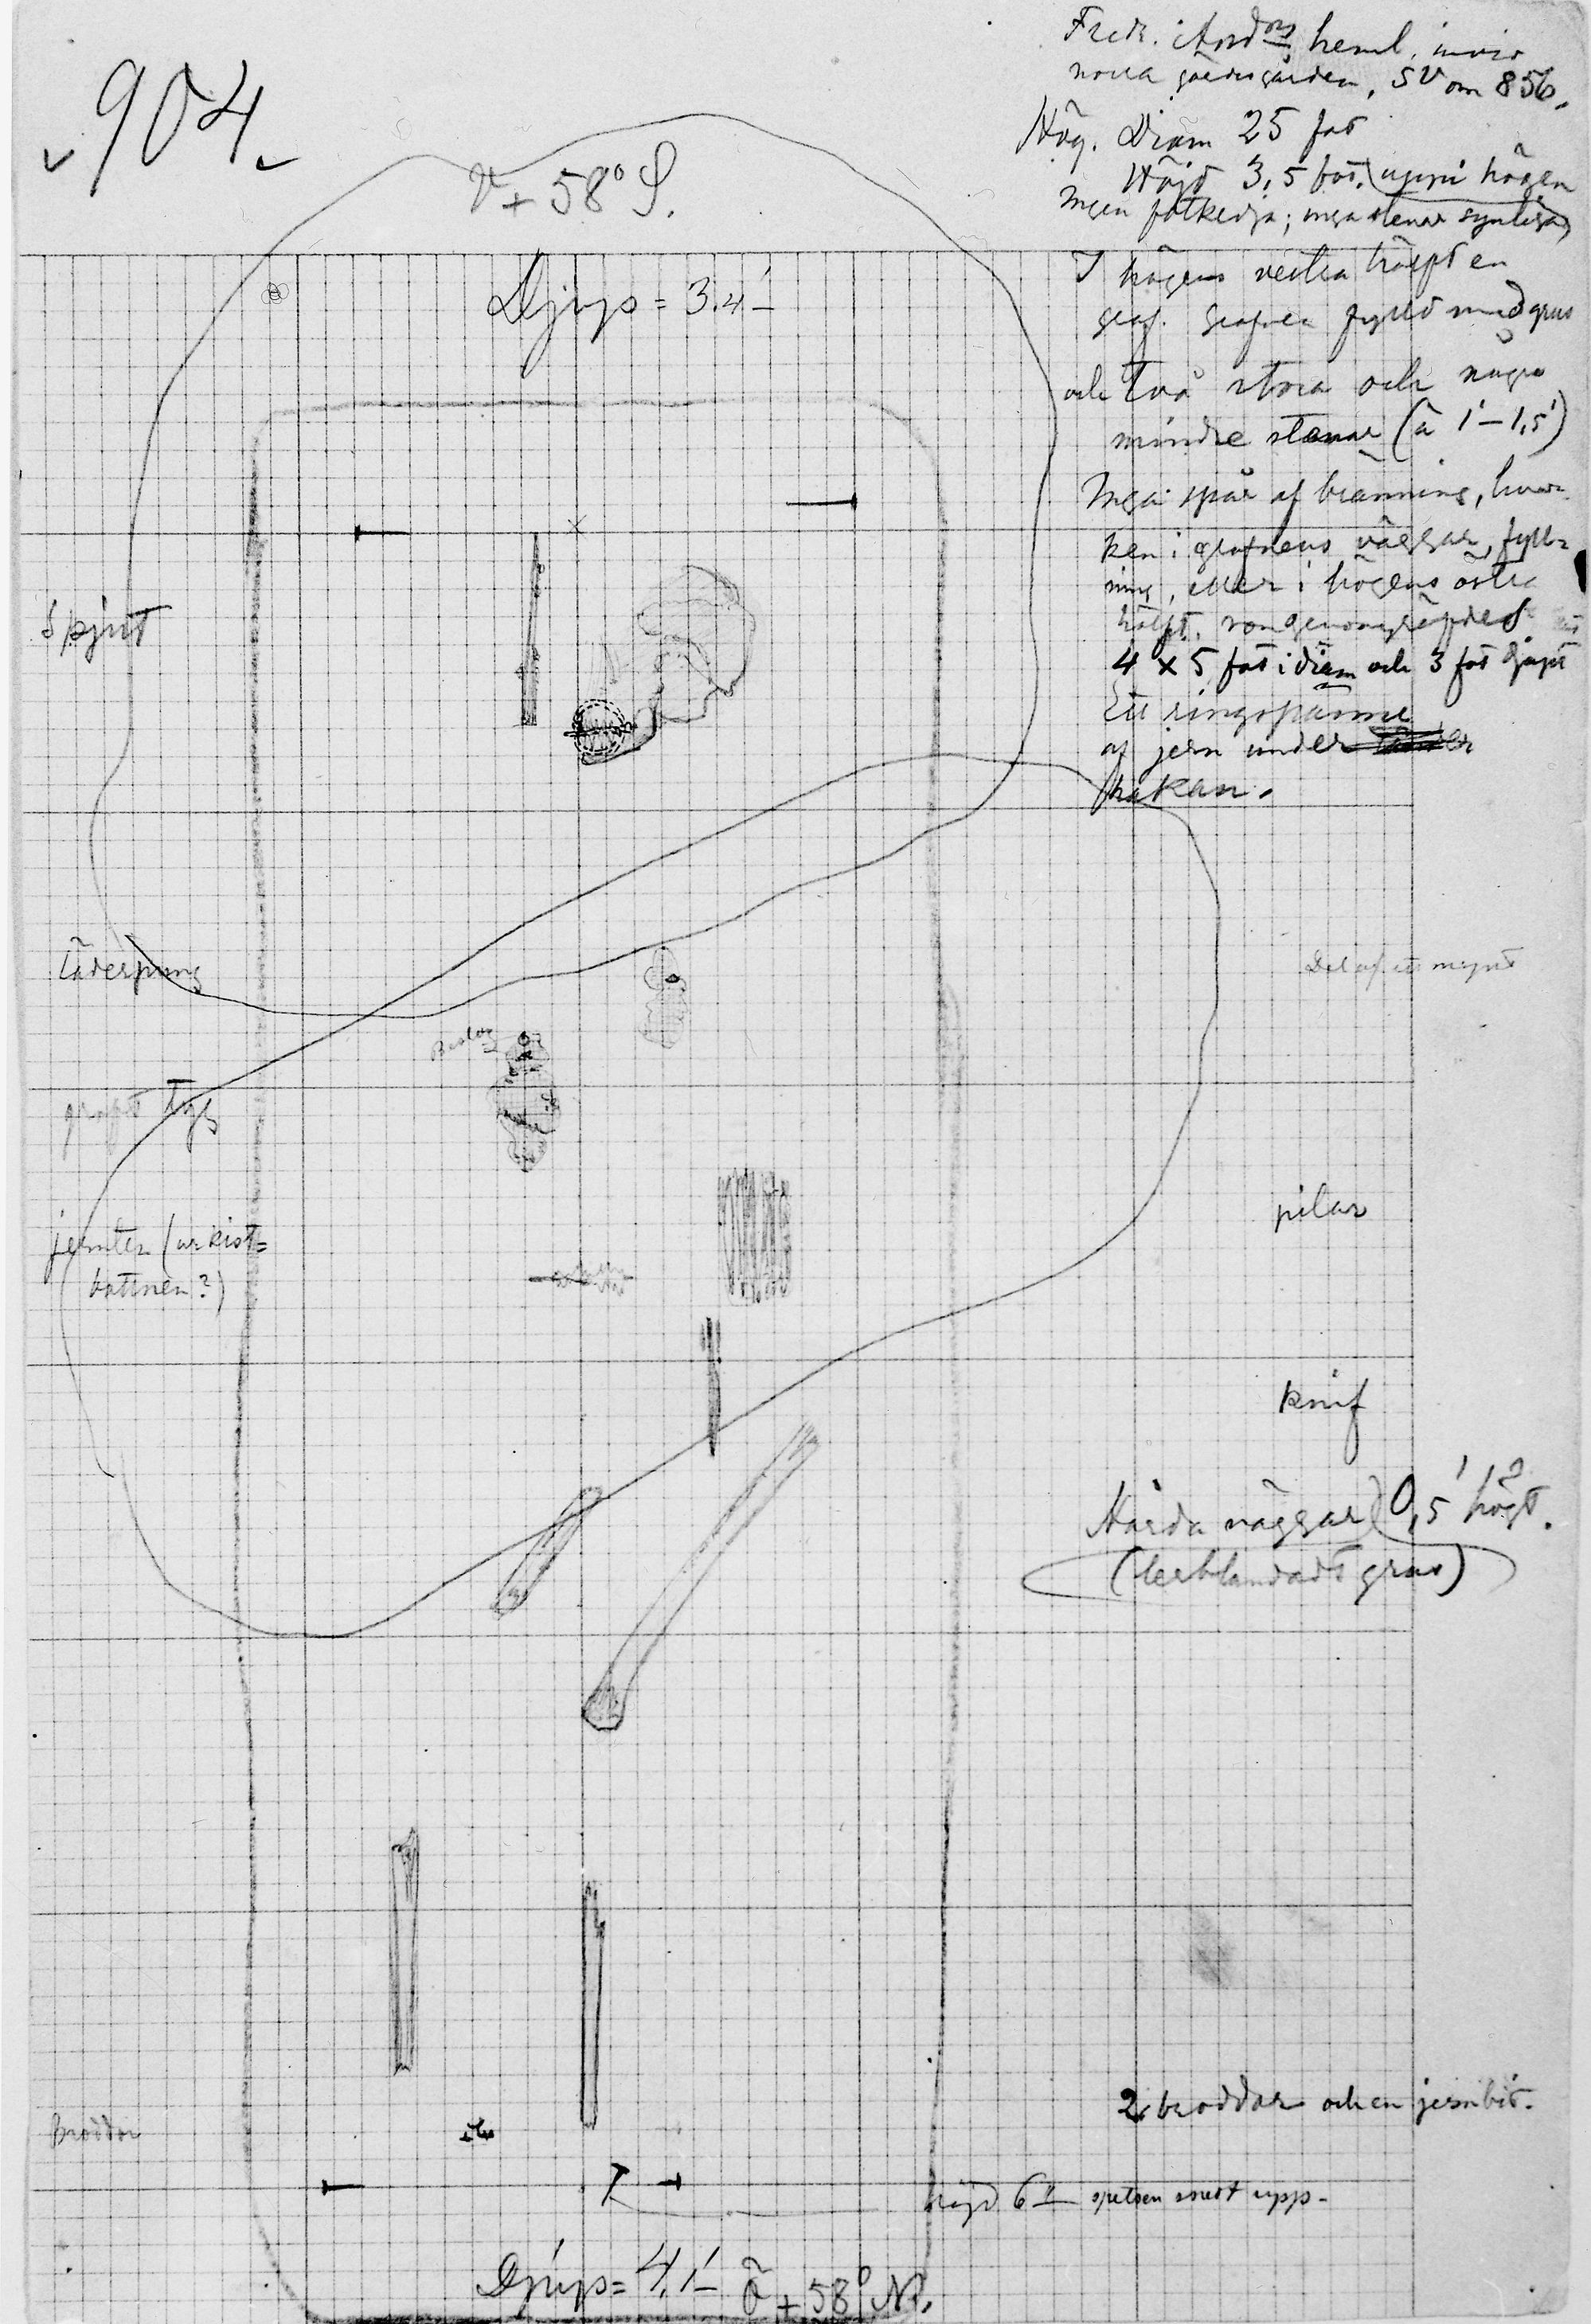 904
V + 58° S.
Djup = 3.4'
Fredr. heml. invid
norra gärdesgården, SV om 856.
Hög. Diam 25 fot
Höjd 3,5 fot. uppå högen
ingen fotkedja; inga stenar synliga
I högens vestra hälft en
graf. Grafven fylld med grus
och två stora och några
mindre stenar (à 1'–1,5')
Inga spår af bränning, hvar-
ken i grafvens väggar, fyll-
ning, eller i högens östra
hälft, som genomgräfdes
4 x 5 fot i diam och 3 fot djupt
Ett ringspänne
af jern under
hakan.
Spjut
Läderpung
Del af ett mynt
Beslag
groft tyg
pilar
jernten (ur kist=
bottnen?)
knif
Hårda väggar 0,5' högt.
(lerblandadt grus)
2 broddar och en jernbit.
Broddar
höjd 6" spetsen snedt upp.
Djup = 4,1'
Ö + 58° N.